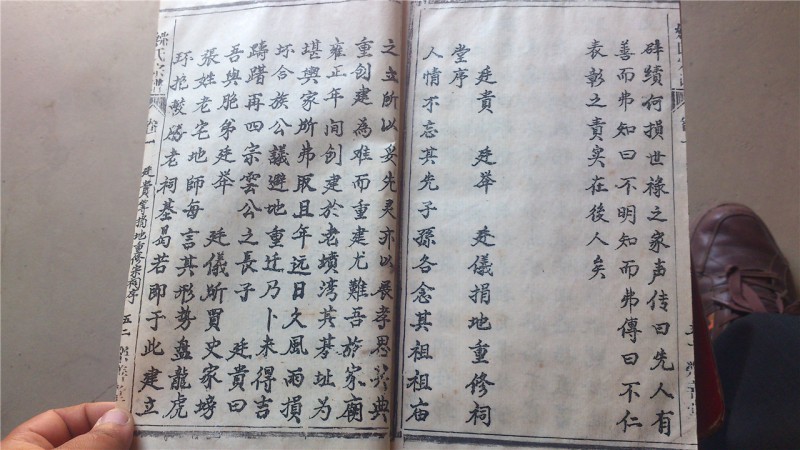 肆績何損世祿之家声传曰先人有
善而弗知曰不明知而弗傳曰不仁
表彰之責实在後人矣
廷貴 廷举 廷儀捐地重修祠
堂序
人情不忘其先子孫各念其祖祖庙
之立所以妥先灵亦以展孝思英典
重创建為难而重建尤難吾族家廟
雍正年间创建於老墳湾其基址为
堪輿家所弗取且年远日久風雨損
坏合族公議避地重迁乃卜来得吉
躊躇再四宗雲公之長子 廷貴曰
吾與胞弟廷举 廷儀所買史家塝
張姓老宅地師每言其形势盘龍虎
环抱較勝老祠基曷若即于此建立
氏宗譜
卷一
廷貴等捐地重修宗祠序
五二